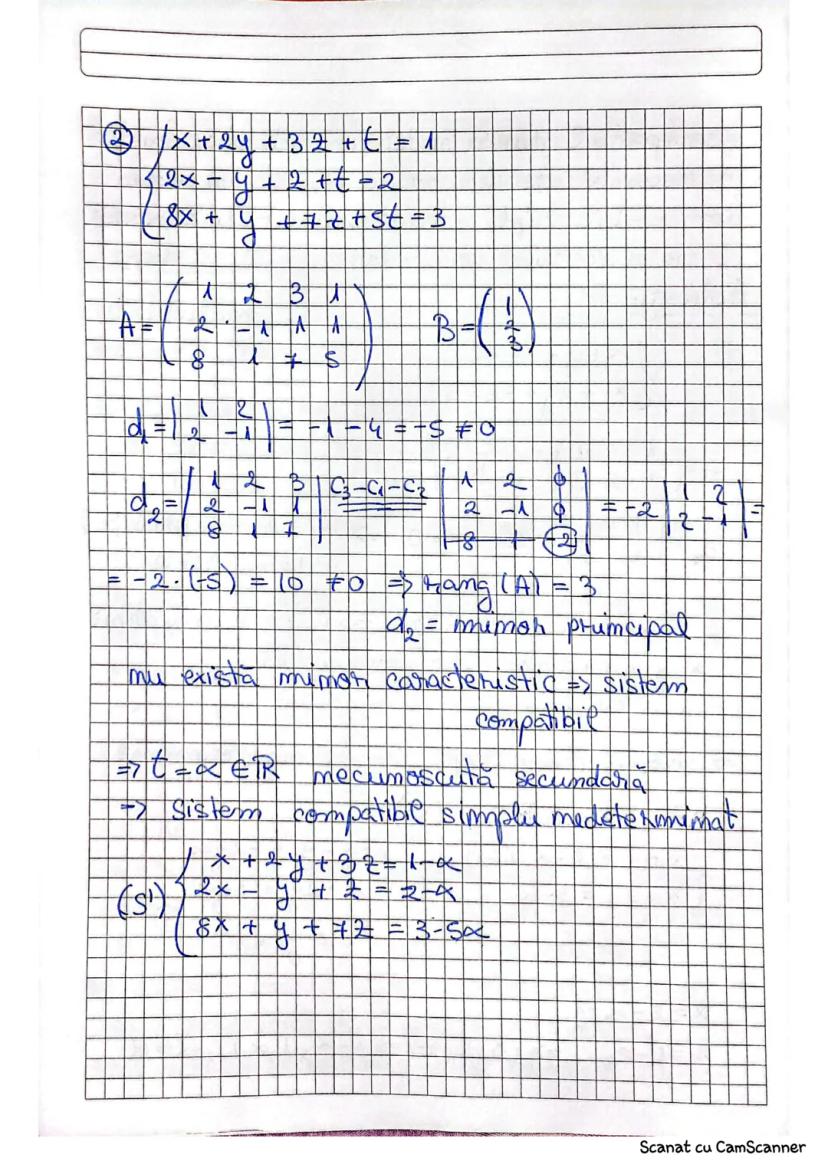 ② { x + 2y + 3z + t = 1
2x - y + z + t = 2
8x + y + 7z + 5t = 3
A = ( 1 2 3 1
2 -1 1 1
8 1 7 5 ) B = ( 1
2
3 )
d₁ = | 1 2
2 -1 | = -1 - 4 = -5 ≠ 0
d₂ = | 1 2 3
2 -1 1
8 1 7 | C₃-C₁-C₂ | 1 2 0
2 -1 0
8 1 -2 | = -2 | 1 2
2 -1 | =
= -2 · (-5) = 10 ≠ 0 => rang (A) = 3
d₂ = minor principal
nu există minor caracteristic => sistem
compatibil
=> t = α ∈ ℝ necunoscută secundară
=> sistem compatibil simplu nedeterminat
(S') { x + 2y + 3z = 1-α
2x - y + z = 2-α
8x + y + 7z = 3-5α
Scanat cu CamScanner